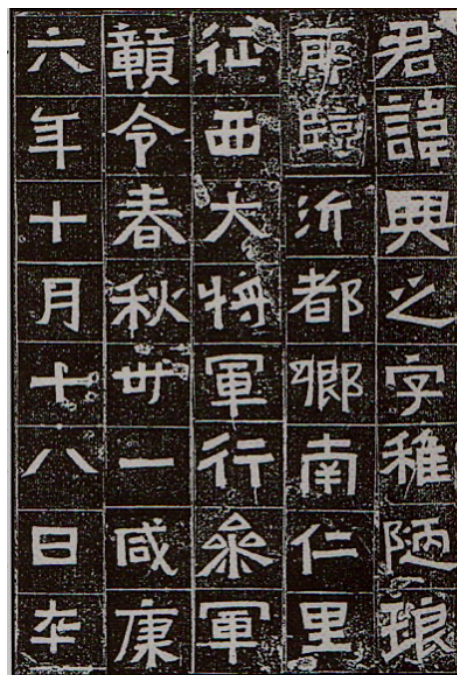 君諱興之字稚陋琅
耶臨沂都鄉南仁里
征西大將軍行參軍
贛令春秋卅一咸康
六年十月十八日卒